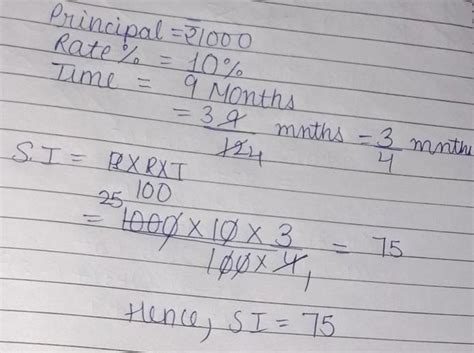 Principal = ₹1000
Rate% = 10%
Time = 9 Months
= 3 9/12 4 mnths = 3/4 mnths
S.I = PXRXT
100
25
= 1000 × 10 × 3 = 75
100 × 4 1
Hence, SI = 75